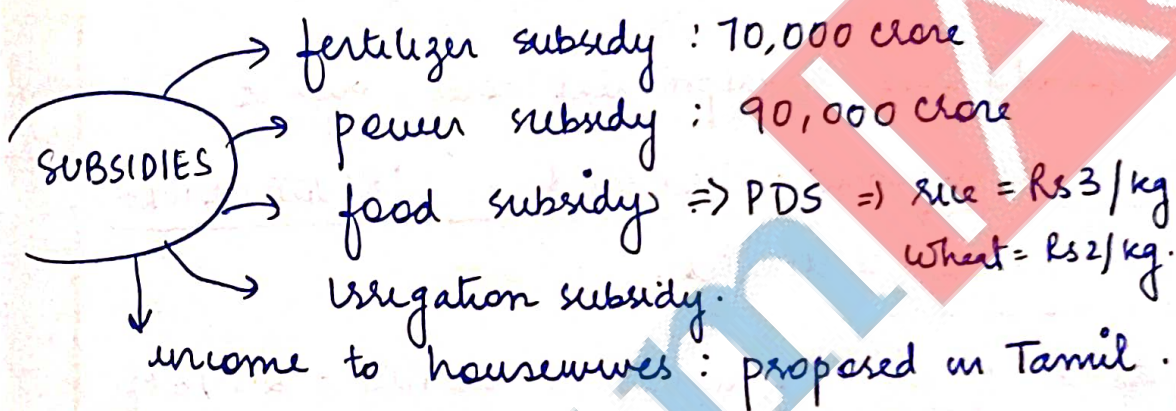 fertilizer subsidy : 70,000 crore
power subsidy : 90,000 crore
SUBSIDIES
food subsidy => PDS => rice = Rs 3/kg
wheat = Rs 2/kg.
irrigation subsidy.
income to housewives : proposed in Tamil.